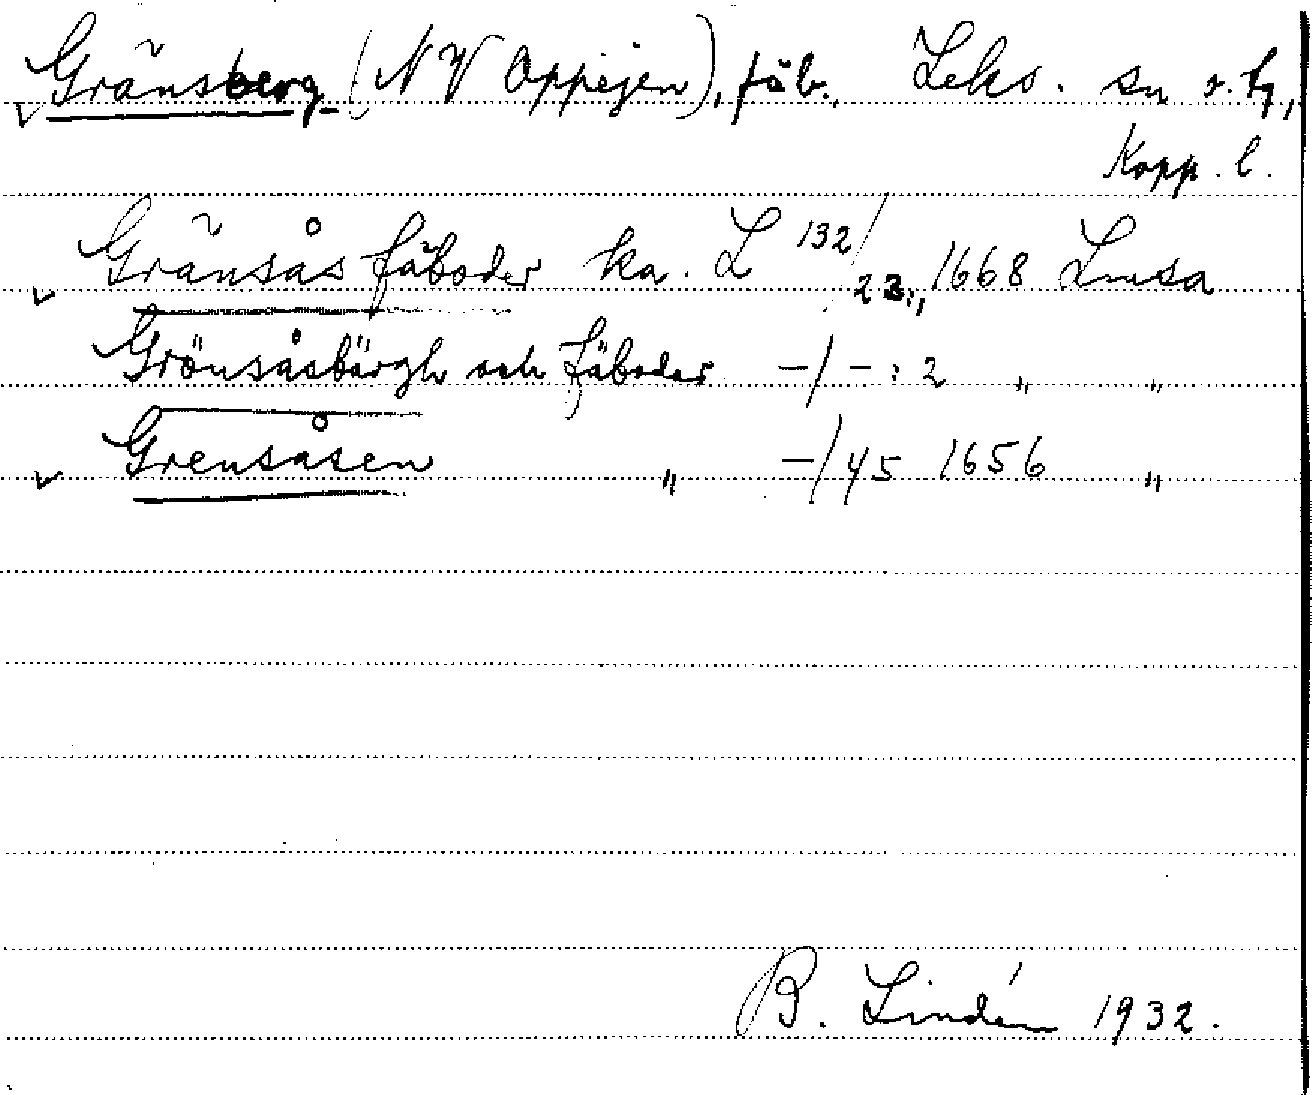 Gränsberg (NV Oppejen), fäb., Leks. sn o. tg,
Kopp. l.
Gränsås fäboder ka. L 132/23:, 1668 Lmsa
Grönsåsbärgh och fäboder -/-: 2 " "
Grensåsen " -/45 1656 "
B. Lindén 1932.